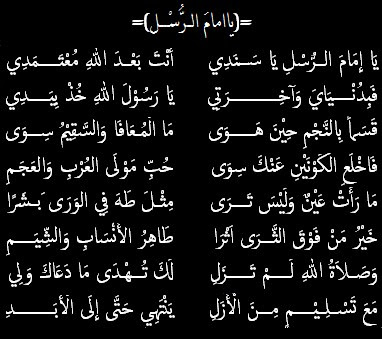 =(يَا اِمَامَ الرُّسْـلِ)=
يَا إِمَامَ الـرُّسْلِ يَا سَنَدِي أَنْتَ بَعْدَ اللهِ مُعْتَمَدِي
فَبِدُنْيَايَ وَآخِـرَتِي يَا رَسُوْلَ اللهِ خُذْ بِيَدِي
قَسَماً بِالنَّجْمِ حِيْنَ هَـوَى مَا الْمُعَافَا وَالسَّقِيْمُ سِوَى
فَاخْلَعِ الْكَوْنَيْنِ عَنْكَ سِوَى حُبِّ مَوْلَى الْعُرْبِ وَالْعَجَمِ
مَا رَأَتْ عَيْنٌ وَلَيْسَ تَـرَى مِثْلَ طٰهَ فِي الْوَرَى بَشَرًا
خَيْرُ مَنْ فَوْقَ الثَّرَى اَثَرًا طَاهِرُ الْأَنْسَابِ وَالشِّيَـمِ
وَصَـلَاةُ اللهِ لَـمْ تَـزَلِ لَكَ تُـهْدَى مَا دَعَاكَ وَلِي
مَعَ تَسْـلِيْـمٍ مِنَ الْأَزَلِ يَنْتَهِي حَتَّى إِلَى الْأَبَـدِ